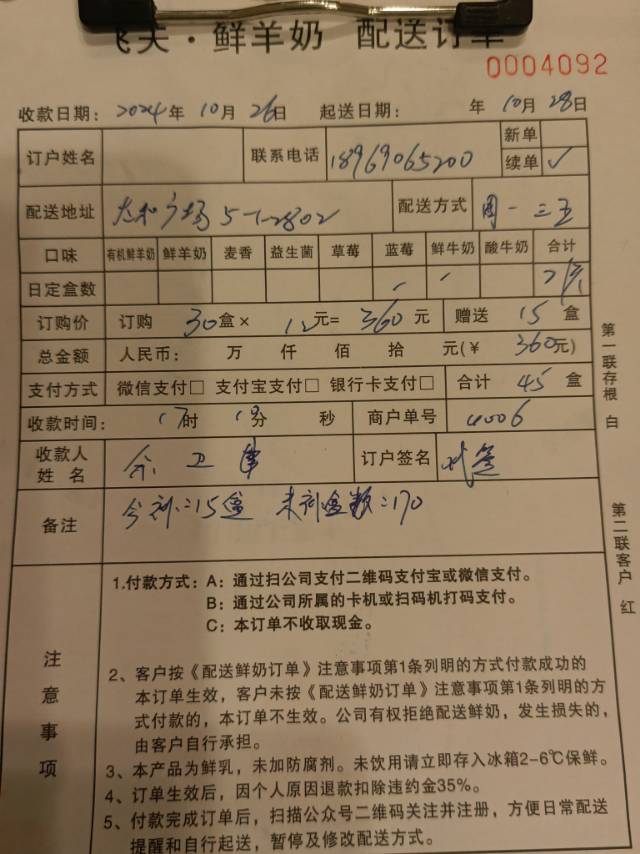 飞天·鲜羊奶 配送订单
0004092
收款日期: 2024年10月26日 起送日期: 年10月28日
订户姓名 联系电话 18969065200 新单 续单 ✓
配送地址 太和广场5-1-2802 配送方式 周一三五
口味 有机鲜羊奶 鲜羊奶 麦香 益生菌 草莓 蓝莓 鲜牛奶 酸牛奶 合计
日定盒数
订购价 订购 30盒× 12元= 360元 赠送 15盒
总金额 人民币: 万 仟 佰 拾 元(¥ 360元)
支付方式 微信支付□ 支付宝支付□ 银行卡支付□ 合计 45盒
收款时间: 17时 分 秒 商户单号 4006
收款人姓名 余卫 订户签名
备注 15盒 未 盒数:170
第一联存根 白
第二联客户 红
注意事项
1.付款方式: A: 通过扫公司支付二维码支付宝或微信支付。
B: 通过公司所属的卡机或扫码机打码支付。
C: 本订单不收取现金。
2、客户按《配送鲜奶订单》注意事项第1条列明的方式付款成功的
本订单生效，客户未按《配送鲜奶订单》注意事项第1条列明的方
式付款的，本订单不生效。公司有权拒绝配送鲜奶，发生损失的，
由客户自行承担。
3、本产品为鲜乳，未加防腐剂。未饮用请立即存入冰箱2-6℃保鲜。
4、订单生效后，因个人原因退款扣除违约金35%。
5、付款完成订单后，扫描公众号二维码关注并注册，方便日常配送
提醒和自行起送，暂停及修改配送方式。